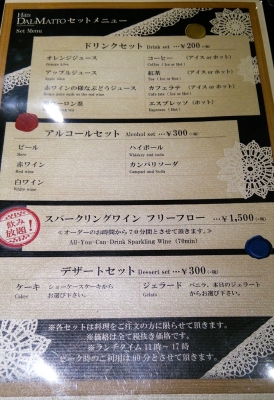 Hills
DAL-MATTO セットメニュー
Set Menu
ドリンクセット Drink set …￥200
オレンジジュース コーヒー (アイス or ホット)
アップルジュース 紅茶 (アイス or ホット)
赤ワインの様なぶどうジュース カフェラテ (アイス or ホット)
ウーロン茶 エスプレッソ (ホット)
アルコールセット Alcohol set …￥300
ビール ハイボール
Beer Whiskey and soda
赤ワイン カンパリソーダ
Red wine Campari and Soda
白ワイン
White wine
飲み放題!
スパークリングワイン フリーフロー …￥1,500
≪オーダーのお時間から70分間とさせて頂きます。≫
All-You-Can-Drink Sparkling Wine (70min)
デザートセット Dessert set …￥300
ケーキ ショーケースケーキから ジェラード バニラ、本日のジェラード
Cake お選び下さい。 Gelato からお選び下さい。
※各セットは料理をご注文の方に限らせて頂きます。
※価格は全て税抜き価格です。
※ランチタイム 11時〜17時
ピーク時のご利用は90分とさせて頂きます。